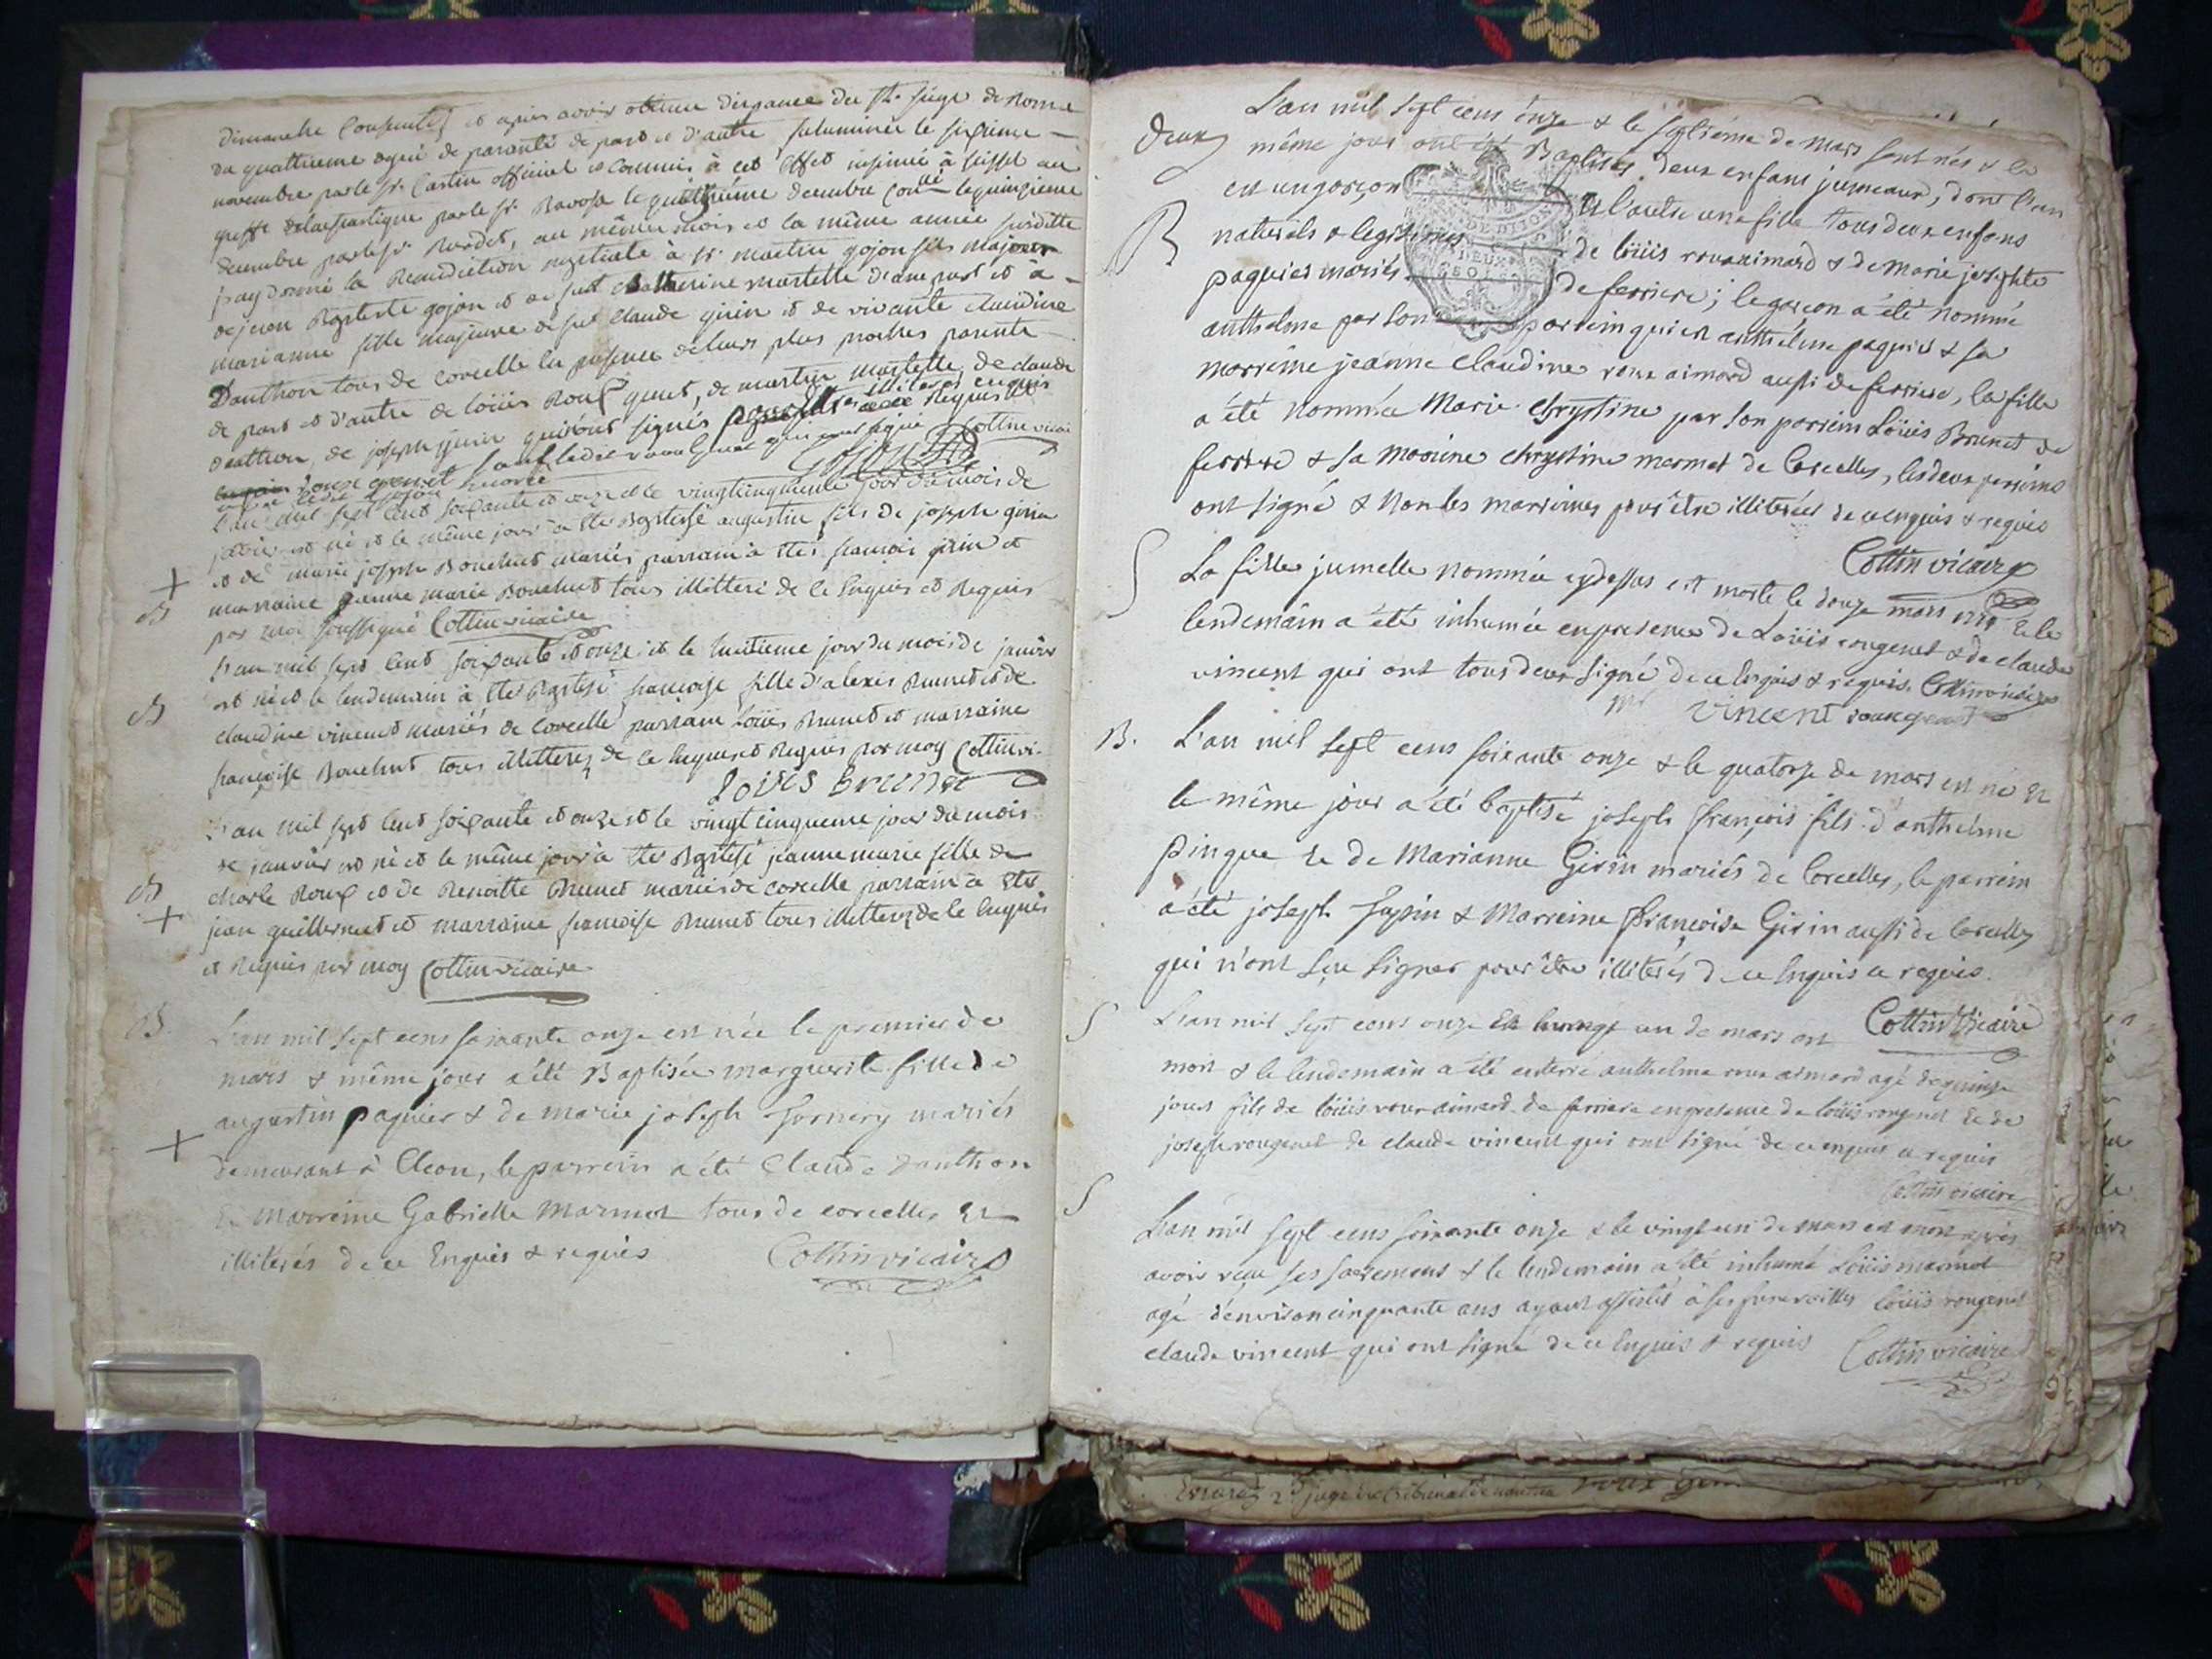 dimanche Consecutif et apres avoir obtenu dispance du St. Siege de Rome
du quattrieme degré de parenté de part et d'autre fulminée le sixieme
novembre par le Sr. official et Commis à cet effet insinué à seissel au
greffe par le Sr. Ravoza le decembre controllé le quinzieme
decembre par le Sr. Burdet, au même mois et la même année susditte
j'ay donné la Benediction nuptiale à Sr. martin gojon fils majeur
de jean Baptiste gojon et de fut Catherine martelle d'une part et à
marianne fille majeure de fut Claude girin et de vivante claudine
Danthon tous de corcelle en presence de leurs plus proches parents
de part et d'autre de loüis Roux genet, de martin martelle, de claude
danthon, de joseph girin qui n'ont signés pour être illiteres enquis et Requis
sauf ledit roux genet qui ont signé Cottin vicai
L'an mil sept cent soixante et onze et le vingtcinquieme jour du mois de
janvier est né et le même jour à été Baptisé augustin fils de joseph girin
+ et de marie joseph Bouchut mariés parrain à été françois girin et
B marraine jeanne marie Bouchut tous illitteré de ce Enquis et Requis
par moi soussigné Cottin vicaire
L'an mil sept cent soixante et onze et le huitieme jour du mois de janvier
est né et le lendemain à été Baptisé françoise fille d'alexis Brunet et de
B claudine vincent mariés de corcelle parrain loüis Brunet et marraine
françoise Bouchut tous illitterez de ce Enquis et Requis par moy Cottin vi.
Loüis Brunet
L'an mil sept cent soixante et onze et le vingt cinqueme jour du mois
de janvier est né et le même jour à été Baptisé jeanne marie fille de
B charle Roux et de Benoitte Brunet mariés de corcelle parrain à été
+ jean guillermet et marraine françoise Brunet tous illitterez de ce Enquis
et Requis par moy Cottin vicaire
B. L'an mil sept cens soixante onze est née le premier de
mars & même jour a été Baptisée marguerite fille de
augustin paquier & de marie joseph fornery mariés
+ demeurant à Cleon, le parrein a été Claude danthon
et Marreine Gabrielle Marmet tous de corcelles et
illiterés de ce Enquis & requis Cottin vicaire
L'an mil sept cens onze & le septiéme de mars sont nés & le
deux même jour ont été Baptisés deux enfans jumeaux, dont l'un
est un garçon & l'autre une fille tous deux enfans
B naturels & legitimes de loüis roux aimard & de marie josephte
paquies mariés de ferriere; le garçon a été nommé
anthelme par son parrein qui est anthélme paquis & sa
marreine jeanne Claudine roux aimard aussi de ferriere, la fille
a été nommée Marie Chrystine par son parrein Loüis Brunet de
ferriere & sa marrine chrystine marmet de Corcelles, les deux parreins
ont signé & non les marreines pour être illiterées de ce enquis & requis
Cottin vicaire
S La fille jumelle nommée cy dessus est morte le douze mars 1771 & le
lendemain a été inhumée en presence de Loüis rougenet & de claude
vincent qui ont tous deux signé de ce Enquis & requis. Cottin vicaire
vincent rouxgenet
B. L'an mil sept cens soixante onze & le quatorze de mars est né et
le même jour a été baptisé joseph françois fils d'anthelme
pingue et de Marianne Girin mariés de Corcelles, le parrein
a été joseph & Marreine françoise Girin aussi de Corcelles
qui n'ont sçu signer pour être illiterés de ce Enquis et requis.
Cottin Vicaire
S L'an mil sept cens onze un de mars est
mort & le lendemain a été enterré anthelme roux aimard agé de quinze
jours fils de loüis roux aimard de ferriere en presence de loüis rougenet et de
joseph rougenet de claude vincent qui ont signé de ce enquis et requis
Cottin vicaire
S L'an mil sept cens soixante onze & le vingt un de mars est mort après
avoir reçu ses sacremens & le lendemain a été inhumé Loüis marmet
agé d'environ cinquante ans ayant assistés à ses funerailles loüis rougenet
claude vincent qui ont signé de ce Enquis & requis Cottin vicaire